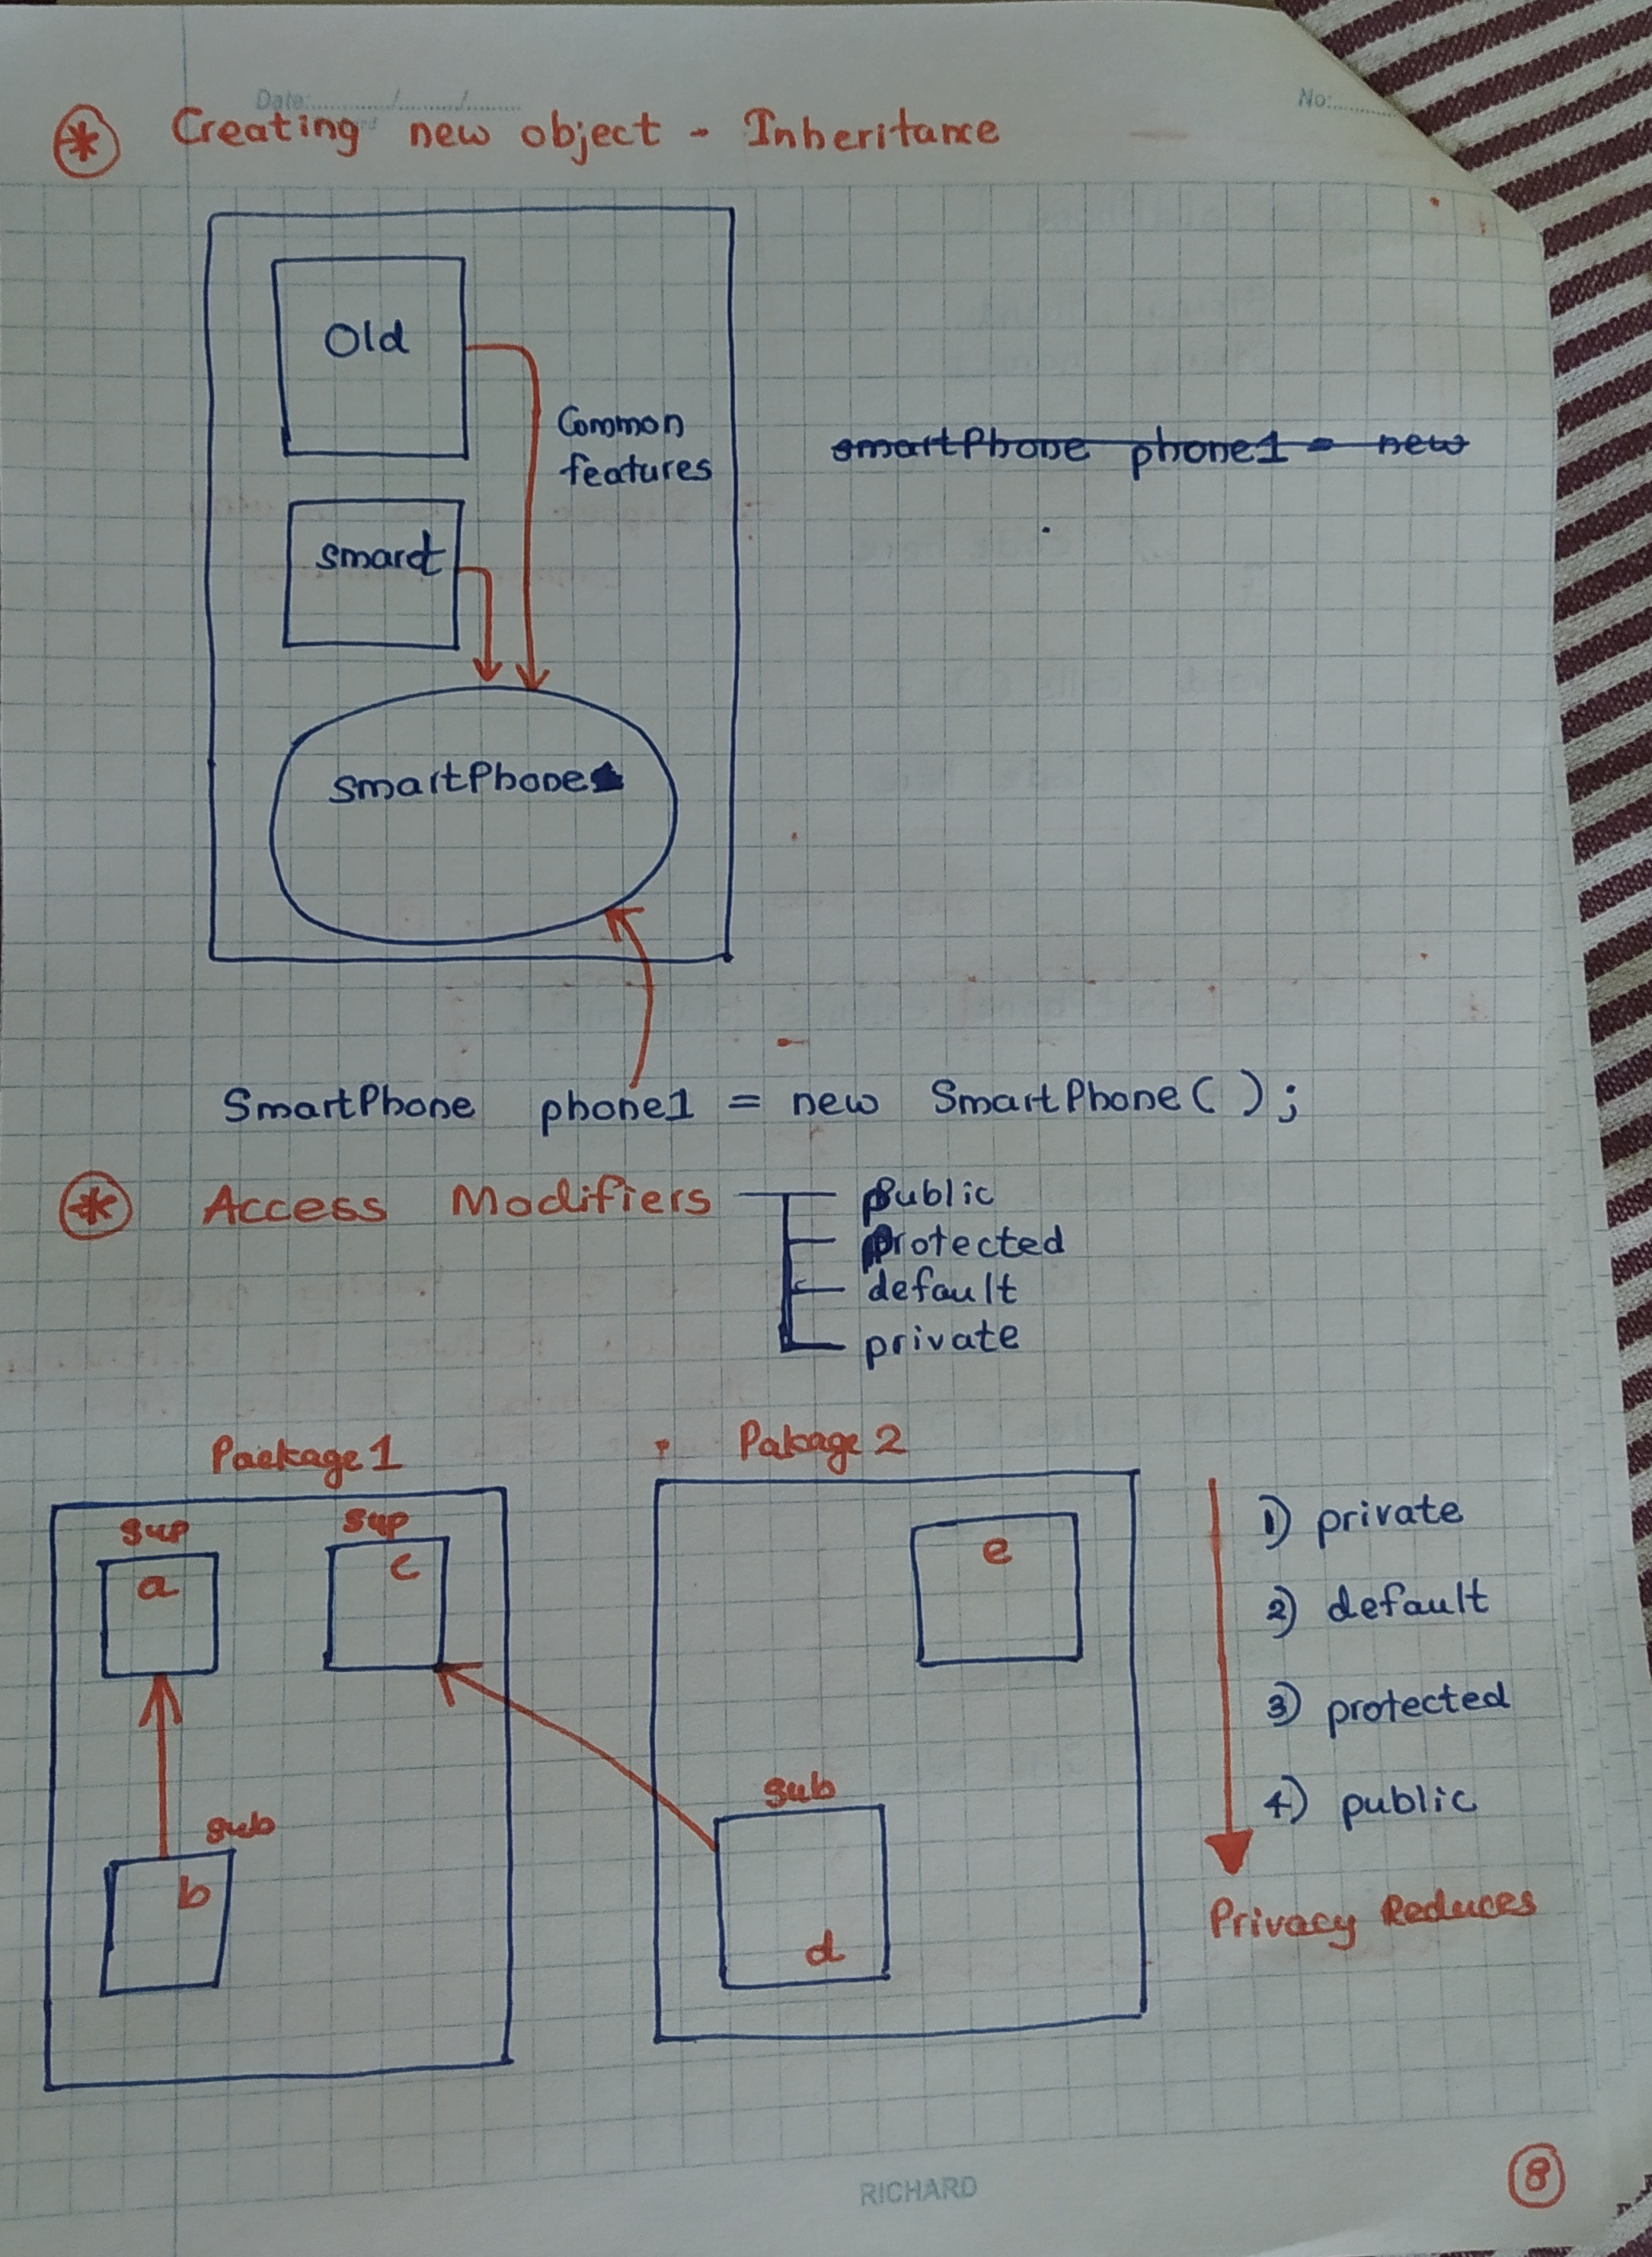 Date:......../......../........
No:........
* Creating new object - Inheritance
Old
Common
features
smartPhone phone1 = new
smart
SmartPhone
SmartPhone phone1 = new SmartPhone( );
* Access Modifiers
public
protected
default
private
Package 1
Pakage 2
sup
a
sup
c
sub
b
e
sub
d
1) private
2) default
3) protected
4) public
Privacy Reduces
RICHARD
8